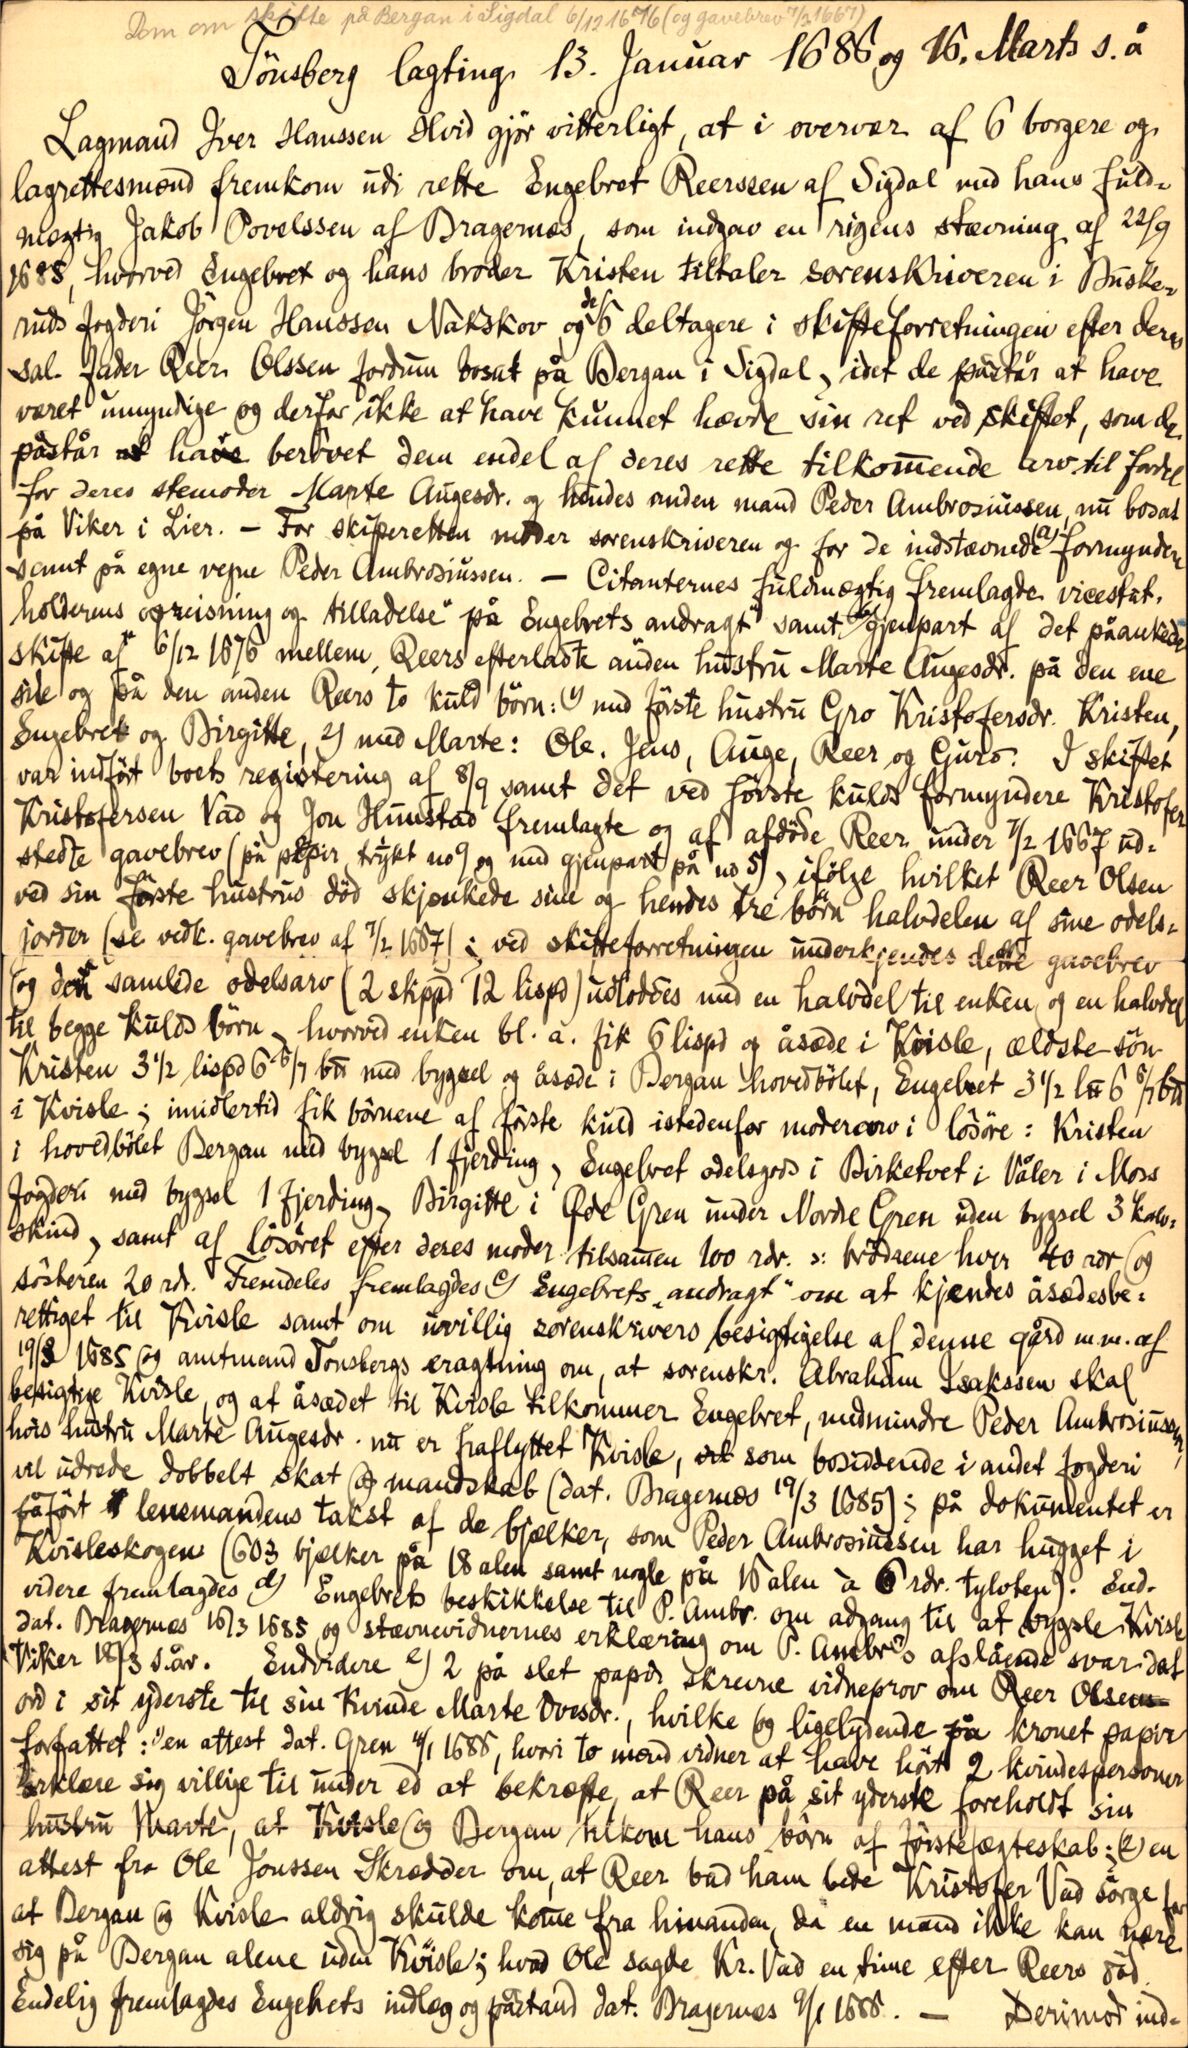 Dom om skifte på Bergan i Sigdal 6/12 1676 (og gavebrev 7/2 1667)
Tönsberg lagting 13. Januar 1686 og 16. Marts s. å
Lagmand Iver Hanssen Hvid gjör vitterligt, at i overvær af 6 borgere og
lagrettesmænd fremkom udi rette Engebret Reerssen af Sigdal med hans fuld-
mægtig Jakob Povelssen af Bragernæs, som indgav en rigens stævning af 22/9
1685, hvorved Engebret og hans broder Kristen tiltaler sorenskriveren i Buske-
ruds fogderi Jörgen Hanssen Nakskov og de 6 deltagere i skifteforretningen efter deres
sal. fader Reer Olssen fordum bosat på Bergan i Sigdal, idet de påstår at have
været umyndige og derfor ikke at have kunnet hævde sin ret ved skiftet, som de
påstår at have berövet dem endel af deres rette tilkommende arv til fordel
for deres stemoder Marte Augesdr. og hendes anden mand Peder Ambrosiussen, nu bosat
på Viker i Lier. — For skifteretten möder sorenskriveren og for de indstævnede formyndere
samt på egne vegne Peder Ambrosiussen. — Citanternes fuldmægtig fremlagde a) vicestat-
holderens opreisning og tilladelse" på Engebrets andragt" samt b) gjenpart af det påankede
skifte af 6/12 1676 mellem Reers efterladte anden hustru Marte Augesdr. på den ene
side og på den anden Reers to kuld börn: 1) med förste hustru Gro Kristofersdr. Kristen,
Engebret og Birgitte, 2) med Marte: Ole, Jens, Auge, Reer og Guro. I skiftet
var indfört boets registering af 8/9 samt det ved förste kulds formyndere Kristofer
Kristofersen Vad og Jon Hunstad fremlagte og af afdöde Reer under 7/2 1667 ud-
stedte gavebrev (på papir trykt no 9 og med gjenpart på no 5), ifölge hvilket Reer Olsen
ved sin förste hustrus död skjænkede sine og hendes tre börn halvdelen af sine odels-
jorder (se vedk. gavebrev af 7/2 1667); ved skifteforretningen underkjendes dette gavebrev
og den samlede odelsarv (2 skippd 12 lispd) udloddes med en halvdel til enken og en halvdel
til begge kulds börn, hvorved enken bl. a. fik 6 lispd og åsæde i Kvisle, ældste sön
Kristen 3 1/2 lispd 6 6/7 bm med bygsel og åsæde i Bergan hovedbölet, Engebret 3 1/2 lu 6 6/7 bm
i Kvisle; imidlertid fik börnene af förste kuld istedenfor moderarv i lösöre: Kristen
i hovedbölet Bergan med bygsel 1 fjerding, Engebret odelsgods i Birketvet i Våler i Moss
fogderi med bygsel 1 fjerding, Birgitte i Øde Gren under Nordre Gren uden bygsel 3 kalv-
skind, samt af lösöret efter deres moder tilsamen 100 rdr. ɔ: brödrene hver 40 rdr og
sösteren 20 rdr. Fremdeles fremlagdes c) Engebrets „andragt" om at kjendes åsædesbe-
rettiget til Kvisle samt om uvillig sorenskrivers besigtigelse af denne gård m.m. af
19/3 1685 og amtmand Tonsbergs eragtning om, at sorenskr. Abraham Isakssen skal
besigtige Kvisle, og at åsædet til Kvisle tilkommer Engebret, medmindre Peder Ambrosiussen,
hvis hustru Marte Augesdr. nu er fraflyttet Kvisle, som bosiddende i andet fogderi
vil udrede dobbelt skat og mandskab (dat. Bragernæs 19/3 1685); på dokumentet er
påfört lensmandens takst af de bjælker, som Peder Ambrosiussen har hugget i
Kvisleskogen (603 bjælker på 18 alen samt nogle på 16 alen à 6 rdr. tylvten). End-
videre fremlagdes d) Engebrets beskikkelse til P. Ambr. om adgang til at bygsle Kvisle
dat. Bragernæs 16/3 1685 og stævnevidnernes erklæring om P. Ambr's afslående svar dat
Viker 18/3 s.år. Endvidere e) 2 på slet papir skrevne vidneprov om Reer Olsens
ord i sit yderste til sin kvinde Marte Ovesdr., hvilke og ligelydende på kronet papir
forfattet: 1) en attest dat. Gren 4/1 1686, hvori to mænd vidner at have hört 2 kvindespersoner
erklære sig villige til under ed at bekræfte, at Reer på sit yderste foreholdt sin
hustru Marte, at Kvisle og Bergan tilkom hans börn af förste ægteskab; 2) en
attest fra Ole Jonssen Skrædder om, at Reer bad ham bede Kristofer Vad sörge for
at Bergan og Kvisle aldrig skulde kome fra hinanden, da en mand ikke kan nære
sig på Bergan alene uden Kvisle; hvad Ole sagde Kr. Vad en time efter Reers död.
Endelig fremlagdes Engebrets indlæg og påstand dat. Bragernæs 9/1 1686. — Derimod ind-